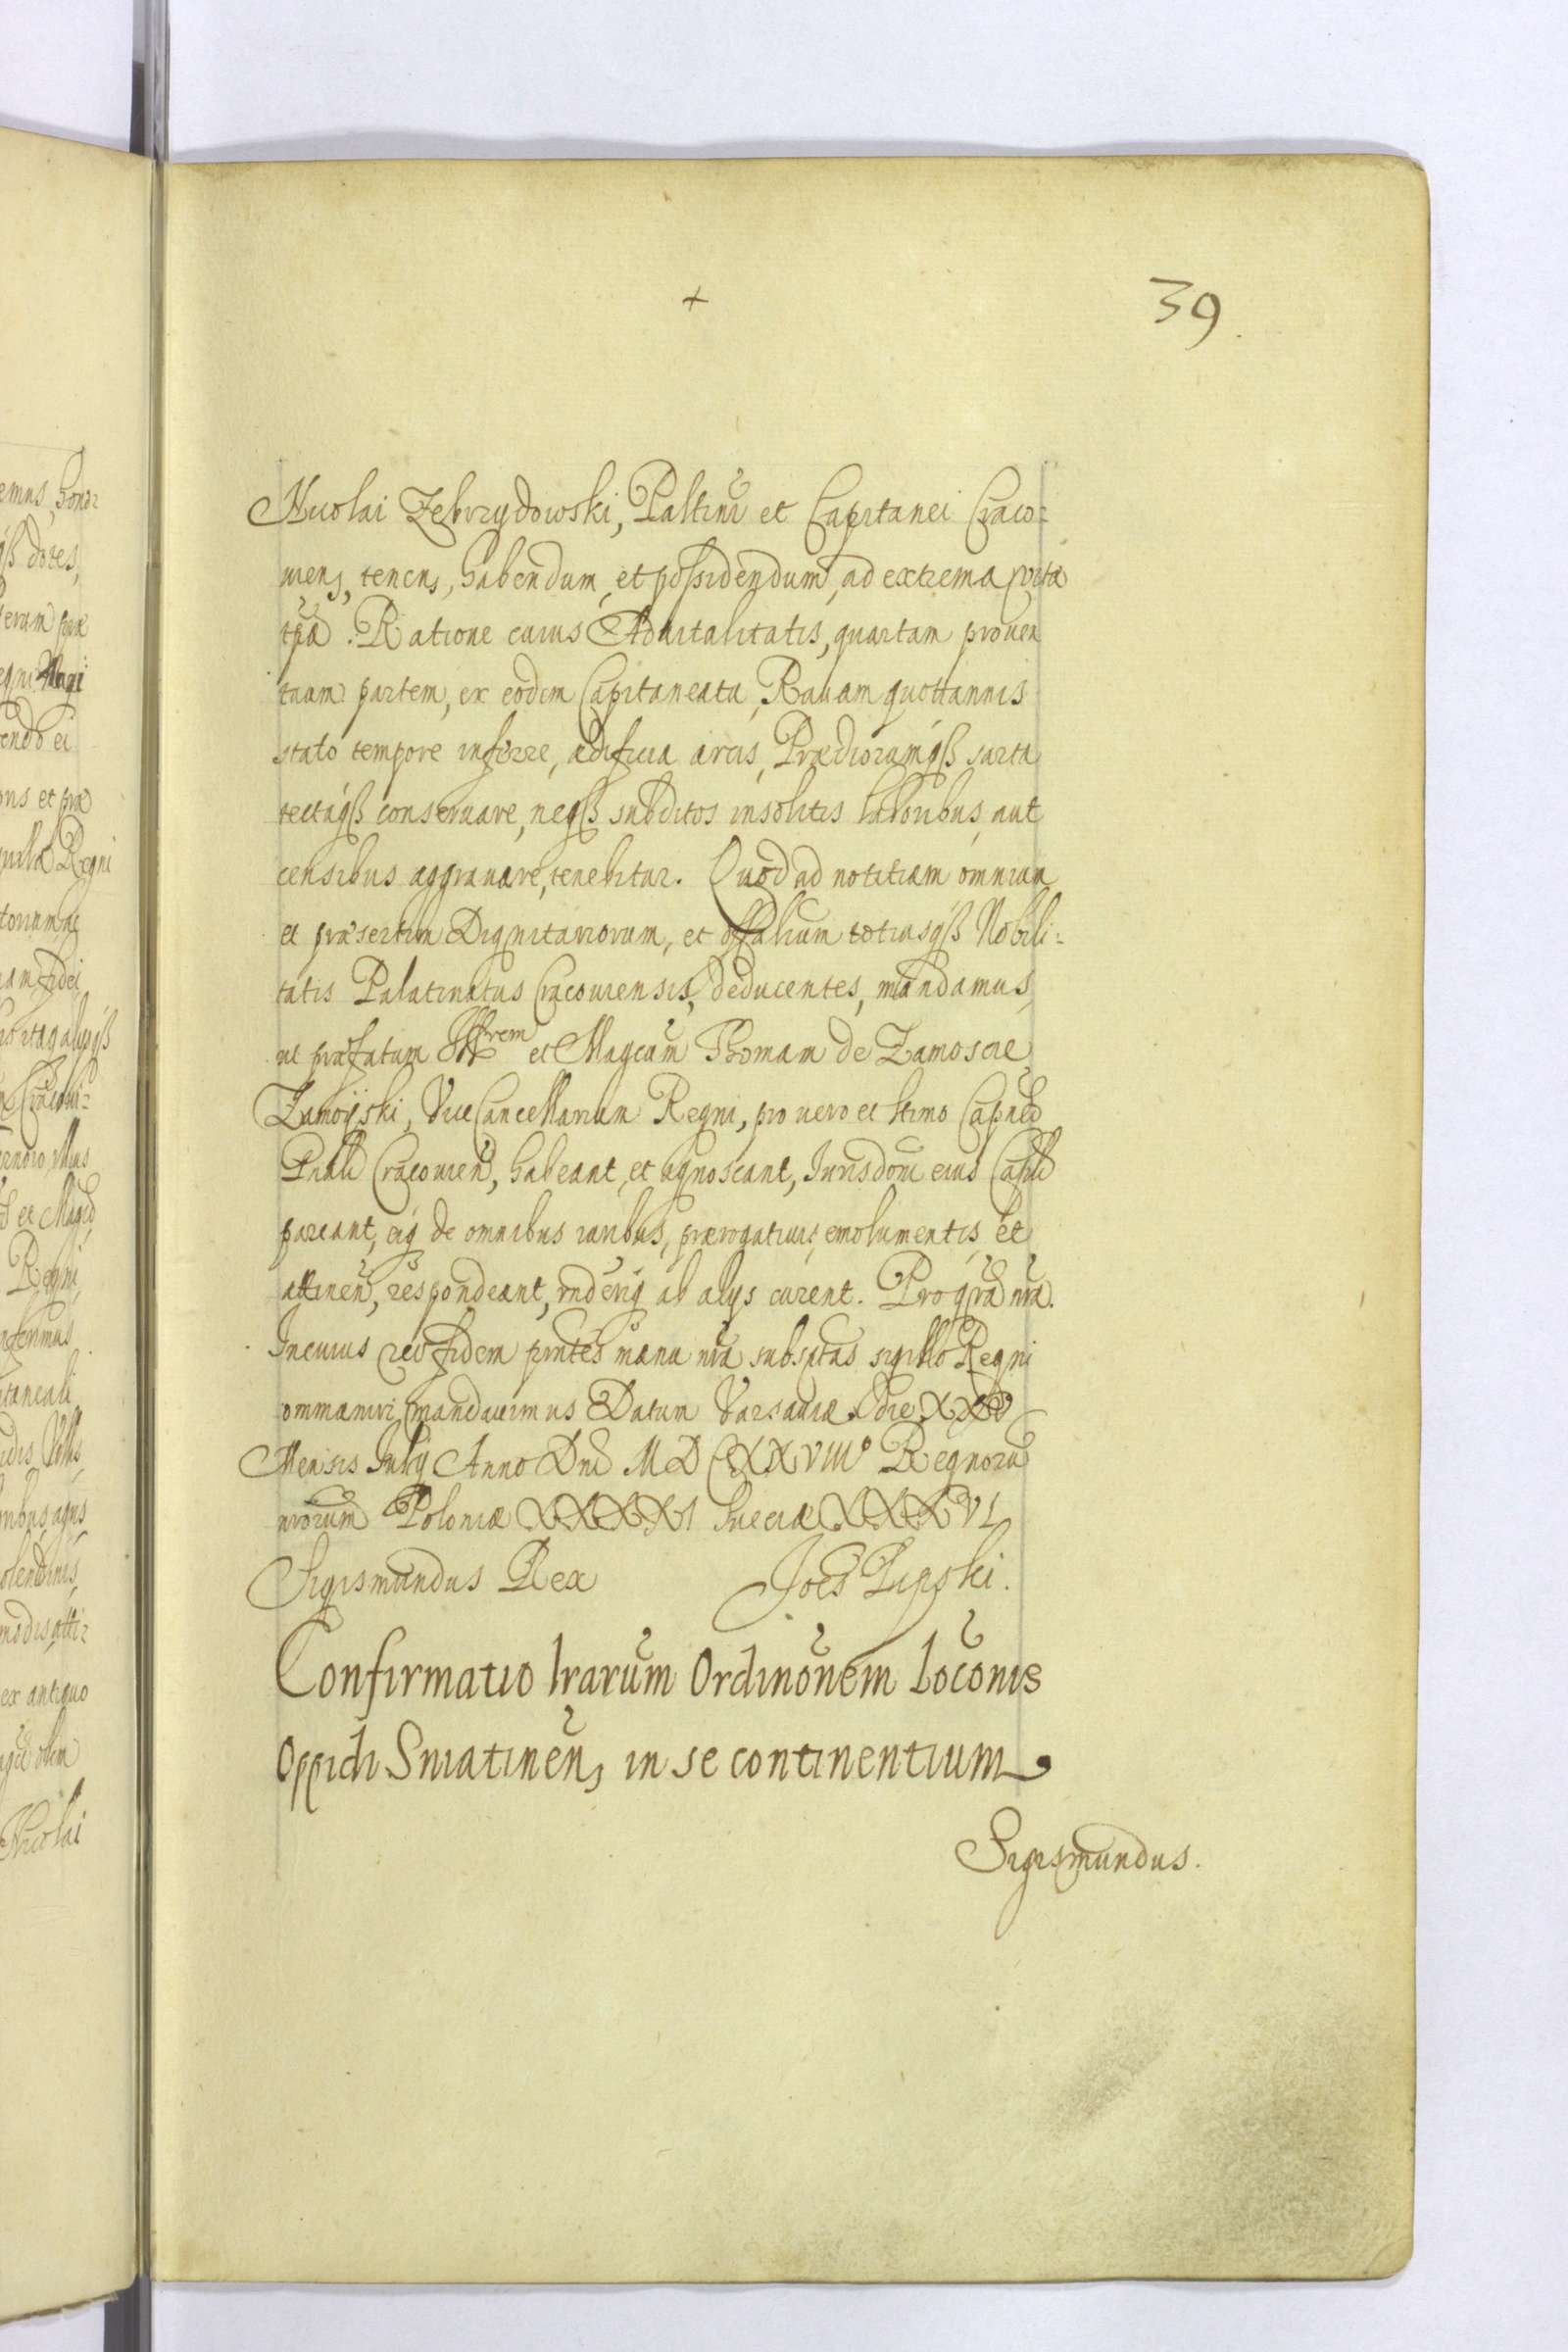 39.
Nicolai Zebrzydowski, Paltini et Capitanei Craco=
uiens, tenens, habendum, et possidendum, ad extrema vitæ
tpa. Ratione cuius Aduitalitatis, quartam prouen
tuum partem, ex eodem Capitaneatu, Rauam quottannis
stato tempore inferre, ædificia arcis, Prædiorumqß sarta
tectaqß conseruare, neqß subditos insolitis laboribus, aut
censibus aggrauare, tenebitur. Quod ad notitiam omnium
et præsertim Dignitariorum, et offalium totiusqß Nobili=
tatis Palatinatus Cracouiensis, deducentes, mandamus,
ut præfatum et Magcum Thomam de Zamoscie
Zamoÿski, ViceCancellarium Regni, pro uero et ltimo Capneo
Gnali Cracouien, habeant, et agnoscant, Jurisdoni eius Capli
pareant, eiq de omnibus iuribus, prærogatiuis, emolumentis, et
attinen, respondeant, ab alys curent. Pro gra nra.
In cuius rei fidem pntes manu nra subsptas sigillo Regni
communiri mandauimus Datum Varsauiæ die XXV
Mensis July Anno Dni M D CXXVIIIº Regnoru
nrorum Poloniæ XXXXI Sueciæ XXXVI
Sigismundus Rex Joēs Lipski.
Confirmatio lrarum Ordinōnem loconis
Oppidi Sniatinen, in se continentium
Sigismundus.
emus, hono=
qß dotes,
Regni
endo ei
Regni
am fidei
et Magco
Regni
ex antiquo
olim
Nicolai